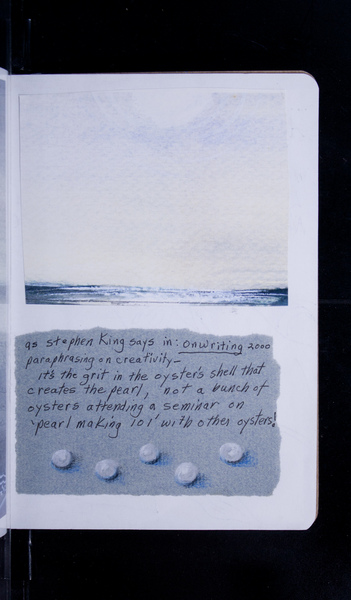 as stephen King says in: OnWriting 2000
paraphrasing on creativity—
it's the grit in the oyster's shell that
creates the pearl, not a bunch of
oysters attending a seminar on
'pearl making 101' with other oysters!